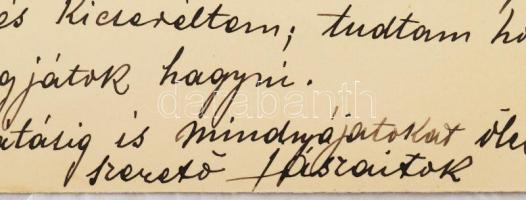 és Kicseréltem; tudtam ho
gjátok hagyni.
darabanth
atásig is mindnyájatokat ölel
szerető Jászaitok